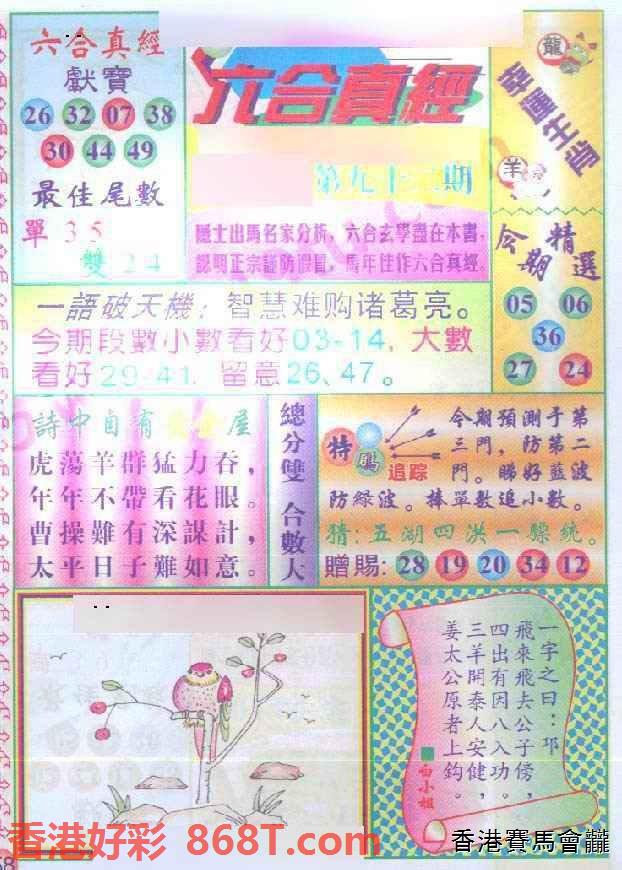 六合真經
獻寶
26 32 07 38
30 44 49
最佳尾數
單 3 5
雙 2 4
六合真經
第九十二期
隱士出馬名家分析，六合玄學盡在本書，
認明正宗謹防假冒，馬年佳作六合真經。
龍
幸運生肖
羊
今期精選
05 06
36
27 24
一語破天機：智慧难购诸葛亮。
今期段數小數看好03-14，大數
看好29-41，留意26、47。
詩中自有
屋
虎蕩羊群猛力吞，
年年不帶看花眼。
曹操難有深謀計，
太平日子難如意。
總分雙 合數大
特
追踪
今期預測于第
三門，防第二
門。睇好藍波
防綠波。棒單數追小數。
猜：五湖四洪一縣統。
贈賜：28 19 20 34 12
一字之曰：邛
飛來飛去公子傍，
四出有因八入功，
三羊開泰人安健，
姜太公原者上鈎。
白小姐
香港好彩 868T.com
香港賽馬會
58